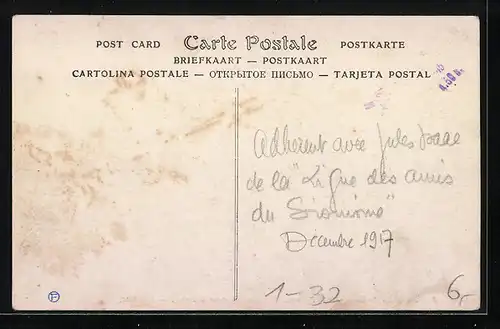 POST CARD Carte Postale POSTKARTE
BRIEFKAART — POSTKAART
CARTOLINA POSTALE — ОТКРЫТОЕ ПИСЬМО — TARJETA POSTAL
Adhérent avec Jules Isaac
de la "Ligue des amis
du Sionisme"
Décembre 1917
1-32
6,-